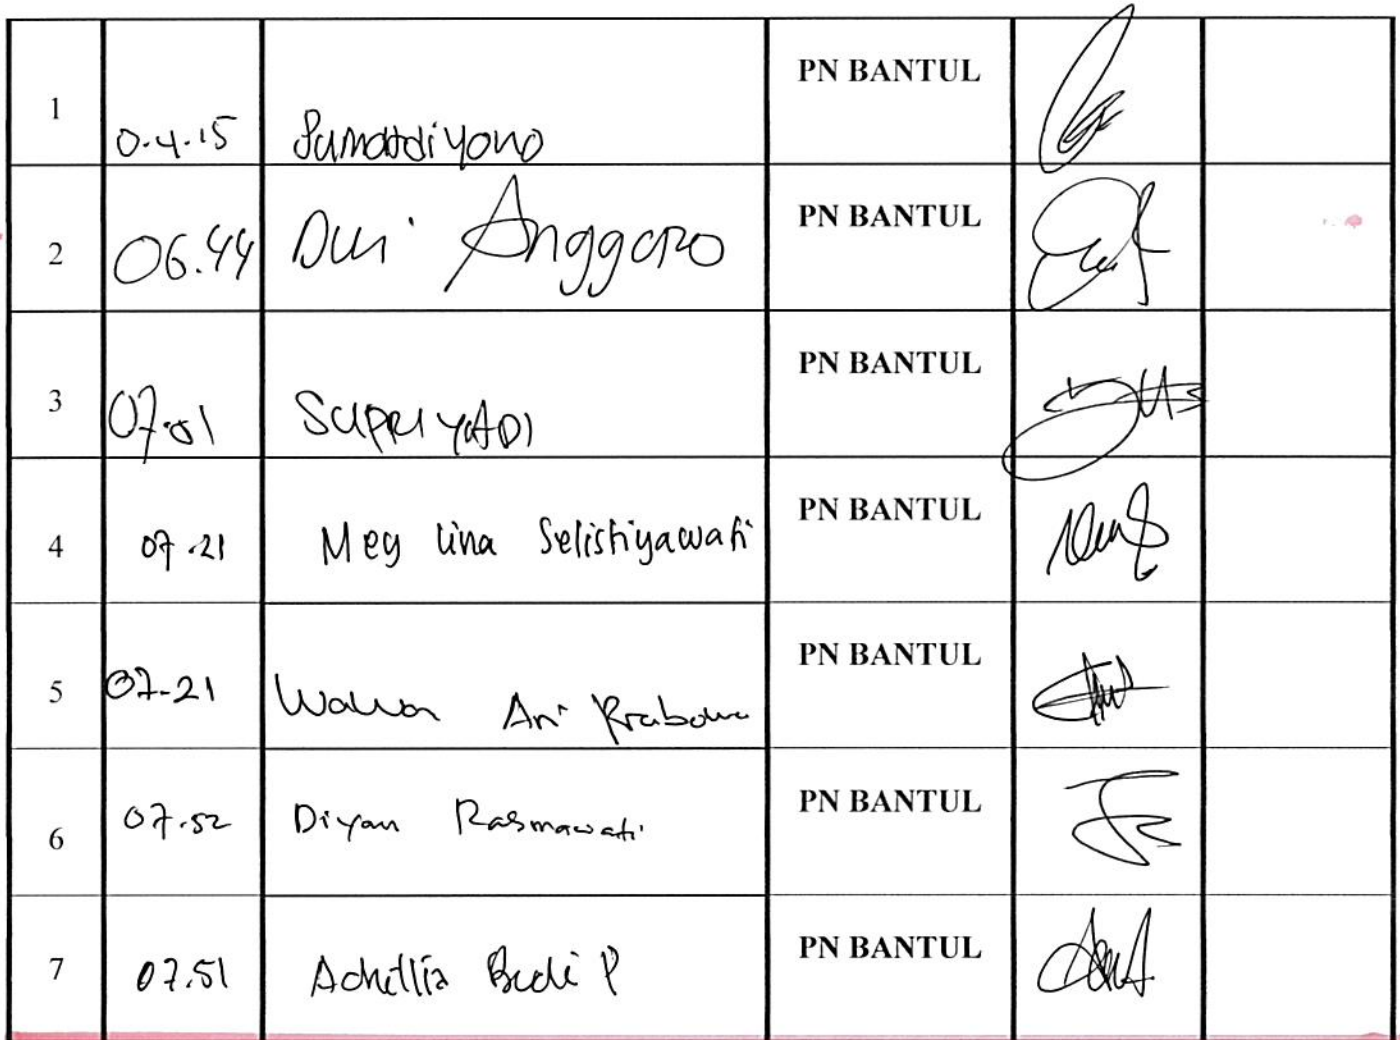 1 0.4.15 PN BANTUL
2 06.44 Dwi Anggoro PN BANTUL
3 07.01 SUPRIYADI PN BANTUL
4 07.21 Mey Lina Selistiyawati PN BANTUL
5 07-21 Wawan Ari Prabowo PN BANTUL
6 07.52 Diyan Rasmawati PN BANTUL
7 07.51 Budi P PN BANTUL